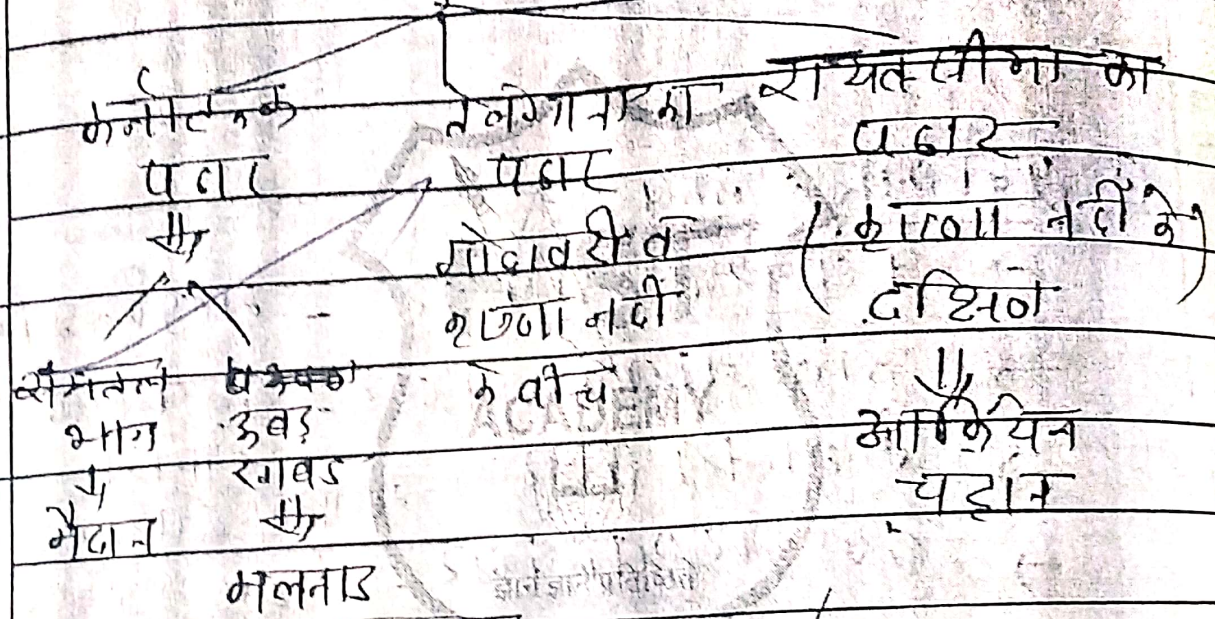 कर्नाटक
पठार
समतल
भाग
मैदान
ऊबड़
खाबड
मलनाड
तेलंगाना का
पठार
गोदावरी व
कृष्णा नदी
के बीच
रायलसीमा का
पठार
(कृष्णा नदी के
दक्षिण)
आर्कियन
चट्टान
ACADEMY